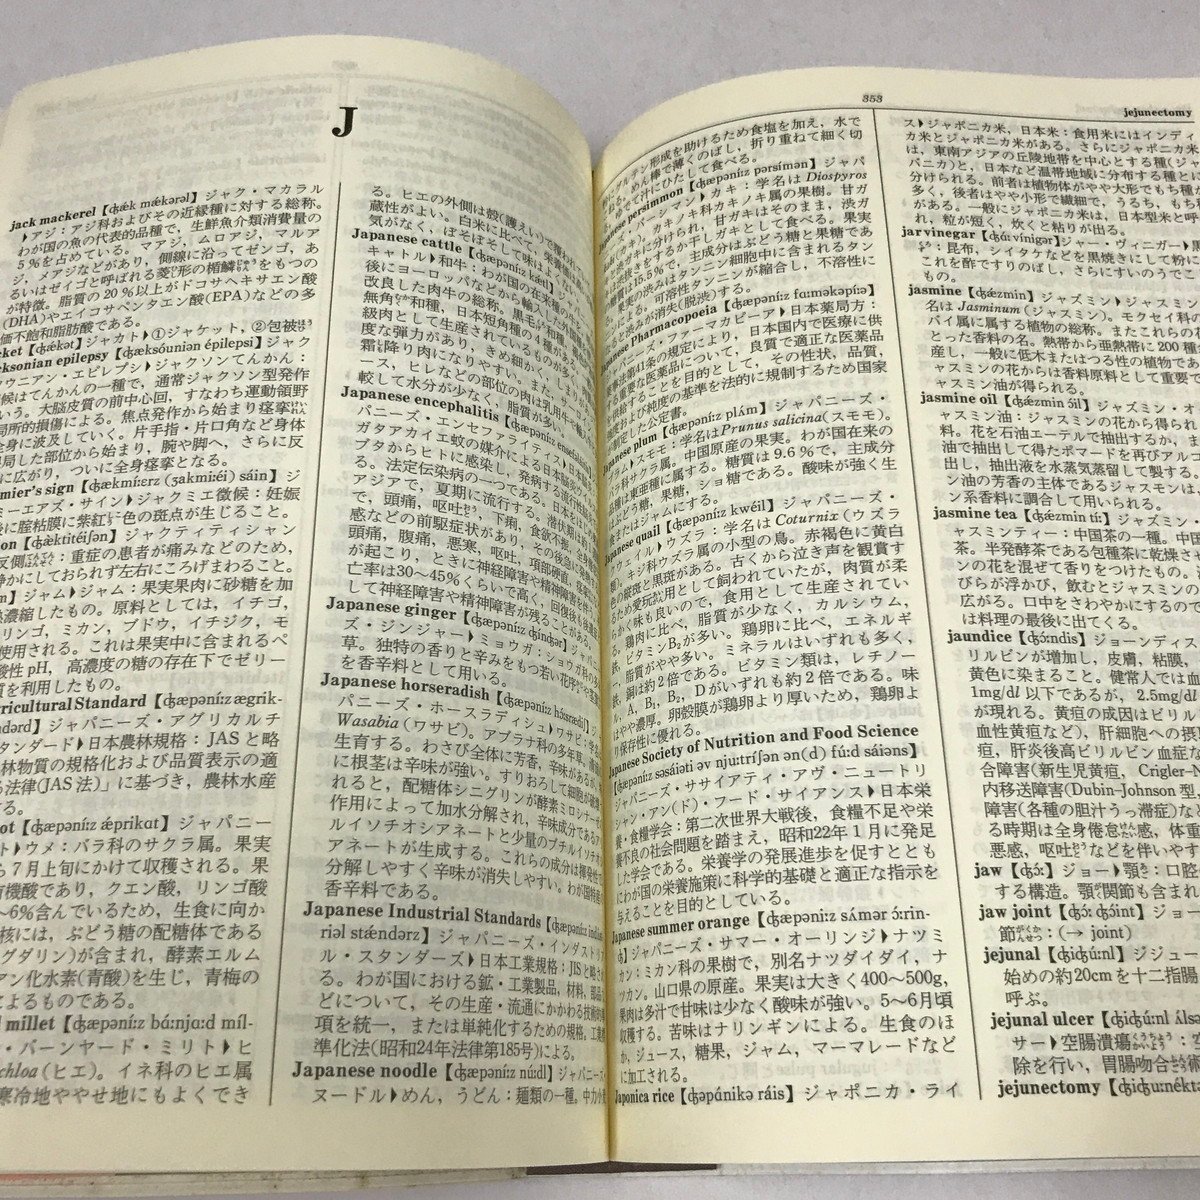 J
jack mackerel【ʤǽk mǽkərəl】ジャク・マカラル
▶アジ：アジ科およびその近縁種に対する総称。
わが国の魚の代表的品種で，生鮮魚介類消費量の
5％を占めている。マアジ，ムロアジ，マルア
ジ，メアジなどがあり，側線に沿ってゼンゴ，あ
るいはゼイゴと呼ばれる菱形の楯鱗をもつの
が特徴。脂質の20％以上がドコサヘキサエン酸
(DHA)やエイコサペンタエン酸(EPA)などの多
価不飽和脂肪酸である。
【ʤǽkət】ジャカト▶①ジャケット，②包被
ksonian epilepsy【ʤæksóuniən épilepsi】ジャク
ウニアン・エピレプシ▶ジャクソンてんかん：
候はてんかんの一種で，通常ジャクソン型発作
いう。大脳皮質の前中心回，すなわち運動領野
局所の損傷による。焦点発作から始まり痙攣
全身に波及していく。片手指・片口角など身体
局した部位から始まり，腕や脚へ，さらに反
に広がり，ついに全身痙攣となる。
mier's sign【ʤækmíːerz (ʒakmitéi) sáin】ジ
ミーエアズ・サイン▶ジャクミエ徴候：妊娠
に腟粘膜に紫紅色の斑点が生じること。
on【ʤæktitéiʃən】ジャクティティシャン
反側：重症の患者が痛みなどのため，
静かにしておられず左右にころげまわること。
】ジャム▶ジャム：果実果肉に砂糖を加
濃縮したもの。原料としては，イチゴ，
リンゴ，ミカン，ブドウ，イチジク，モ
使用される。これは果実中に含まれるペ
酸性pH，高濃度の糖の存在下でゼリー
質を利用したもの。
ricultural Standard【ʤæpəníːz ægrik-
ndərd】ジャパニーズ・アグリカルチ
タンダード▶日本農林規格：JASと略
林物質の規格化および品質表示の適
る法律(JAS法)」に基づき，農林水産
る。
ot【ʤæpəníːz ǽprikɑt】ジャパニー
ト▶ウメ：バラ科のサクラ属。果実
ら7月上旬にかけて収穫される。果
有機酸であり，クエン酸，リンゴ酸
～6％含んでいるため，生食に向か
核には，ぶどう糖の配糖体である
グダリン)が含まれ，酵素エルム
アン化水素(青酸)を生じ，青梅の
によるものである。
millet【ʤæpəníːz bɑ́ːnjɑːd míl-
・バーンヤード・ミリト▶ヒ
chloa(ヒエ)。イネ科のヒエ属
寒冷地ややせ地にもよくでき
る。ヒエの外側は殻(護えい)で覆われ
蔵性がよい。白米に比べて，栄養価
気がなく，ぼそぼそして味はよくない
Japanese cattle【ʤæpəníːz kǽtl】
キャトル▶和牛：わが国の在来種の
後にヨーロッパなどから輸入した外
改良した肉牛の総称。黒毛和種，褐毛
無角和種，日本短角種の4種がある
級肉として生産されているものが多
度な弾力があり，きめ細かく，しまり
霜降り肉になりやすい。また，サーロイ
ス，ヒレなどの部位の肉は乳用牛
較して水分が少なく，脂質が多い。
Japanese encephalitis【ʤæpəníːz ensefəláitis】
パニーズ・エンセファライティス▶日本脳炎
ガタアカイエ蚊の媒介による日本脳炎
ブタからヒトに感染し，発病する流行性
る。法定伝染病の一つである。日本を
アジアで，夏期に流行する。潜伏期は
で，頭痛，嘔吐，下痢，食欲不振，全身倦怠
感などの前駆症状があり，その後急に発熱
頭痛，腹痛，悪寒，嘔吐，項部硬直，意識
が起こり，ときに神経障害や精神障害を
亡率は30～45％くらいで高く，回復後も後遺症と
して神経障害や精神障害が残ることがある。
Japanese ginger【ʤæpəníːz ʤínʤər】ジャパニー
ズ・ジンジャー▶ミョウガ：ショウガ科の多年
草。独特の香りと辛みをもつ若い花序や
を香辛料として用いる。
Japanese horseradish【ʤæpəníːz hɔ́ːsrædiʃ】ジャ
パニーズ・ホースラディシュ▶ワサビ：学名は
Wasabia(ワサビ)。アブラナ科の多年草，清流に
生育する。わさび全体に芳香，辛味があるが，とく
に根茎は辛味が強い。すりおろして細胞が破壊さ
れると，配糖体シニグリンが酵素ミロシナーゼの
作用によって加水分解され，辛味成分であるアリ
ルイソチオシアネートと少量のブチルイソチオシ
アネートが生成する。これらの成分は揮発性で
分解しやすく辛味が消失しやすい。わが国特有の
香辛料である。
Japanese Industrial Standards【ʤæpəníːz indʌst-
riəl stǽndərz】ジャパニーズ・インダストリ
ル・スタンダーズ▶日本工業規格：JISと略され
る。わが国における鉱・工業製品，材料，部品な
どについて，その生産・流通にかかわる技術的事
項を統一，または単純化するための規格。工業標
準化法(昭和24年法律第185号)による。
Japanese noodle【ʤæpəníːz núːdl】ジャパニーズ・
ヌードル▶めん，うどん：麺類の一種。中力小麦
353
jejunectomy
グルテン形成を助けるため食塩を加え，水で
めん棒で薄くのばし，折り重ねて細く切
ゆでて汁にひたして食べる。
Japanese persimmon【ʤæpəníːz pərsímən】ジャパ
ニーズ・パーシマン▶カキ：学名はDiospyros
(カキ)。カキノキ科カキノキ属の果樹。甘ガ
キに分けられ，甘ガキはそのまま，渋ガ
キをするか干しガキとして食べる。果実
は15.5％で，主成分はぶどう糖と果糖であ
る。果実の渋みはタンニン細胞中に含まれるタン
可溶性タンニンが縮合し，不溶性に
ると渋みが消失(脱渋)する。
Japanese Pharmacopoeia【ʤæpəníːz fɑːməkəpíːə】
ニーズ・ファーマカピーア▶日本薬局方：
第41条の規定により，日本国内で医療に供
重要な医薬品について，良質で適正な医薬品
供給することを目的として，その性状，品質，
および純度の基準を法的に規制するため国家
定した公定書。
Japanese plum【ʤæpəníːz plʌ́m】ジャパニーズ・
プラム▶スモモ：学名はPrunus salicina(スモモ)。
バラ科サクラ属。中国原産の果実。わが国在来の
品種は東亜種に属する。糖質は9.6％で，主成分
はぶどう糖，果糖，ショ糖である。酸味が強く生
またはジャムにする。
Japanese quail【ʤæpəníːz kwéil】ジャパニーズ・
クウェイル▶ウズラ：学名はCoturnix(ウズラ
)。キジ科ウズラ属の小型の鳥。赤褐色に黄白
色の縦斑と黒斑がある。古くから泣き声を観賞す
るため愛玩用として飼われていたが，肉質が柔
らかく味も良いので，食用として生産されてい
る。鶏肉に比べ，脂質が少なく，カルシウム，
鉄，ビタミンB₂が多い。鶏卵に比べ，エネルギ
ー，脂質がやや多い。ミネラルはいずれも多く，
鉄，銅は約2倍である。ビタミン類は，レチノー
ル，A，B₁，B₂，Dがいずれも約2倍である。味
はやや濃厚。卵殻膜が鶏卵より厚いため，鶏卵よ
り保存性に優れる。
Japanese Society of Nutrition and Food Science
【ʤæpəníːz səsáiəti əv njuːtríʃən ən(d) fúːd sáiəns】
ジャパニーズ・ササイアティ・アヴ・ニュートリ
シャン・アン(ド)・フード・サイアンス▶日本栄
養・食糧学会：第二次世界大戦後，食糧不足や栄
養不良の社会問題を踏まえ，昭和22年1月に発足
した学会である。栄養学の発展進歩を促すととも
にわが国の栄養施策に科学的基礎と適正な指示を
与えることを目的としている。
Japanese summer orange【ʤæpəníːz sʌ́mər ɔ́ːrin-
ʤ】ジャパニーズ・サマー・オーリンジ▶ナツミ
カン：ミカン科の果樹で，別名ナツダイダイ，ナ
ツカン。山口県の原産。果実は大きく400～500g，
果肉は多汁で甘味は少なく酸味が強い。5～6月頃
収穫する。苦味はナリンギンによる。生食のほ
か，ジュース，糖果，ジャム，マーマレードなど
に加工される。
Japonica rice【ʤəpɑ́nikə ráis】ジャポニカ・ライ
ス▶ジャポニカ米，日本米：食用米にはインディ
カ米とジャポニカ米がある。さらにジャポニカ米
は，東南アジアの丘陵地帯を中心とする種(ジャ
バニカ)と，日本など温帯地域に分布する種とに
分けられる。前者は植物体がやや大形でもち種が
多く，後者はやや小形で繊細で，うるち，もち種
がある。一般にジャポニカ米は，日本型米と呼
れ，粒が短く，炊くと粘りが出る。
jar vinegar【ʤɑ́ːr vínigər】ジャー・ヴィニガー▶黒
：昆布，シイタケなどを黒焼きにして粉に
これを酢ですりのばし，さらにすいのうでこ
もの。
jasmine【ʤǽzmin】ジャズミン▶ジャスミン
名はJasminum(ジャスミン)。モクセイ科の
バイ属に属する植物の総称。またこれらの
とった香料の名。熱帯から亜熱帯に200種
産し，一般に低木またはつる性の植物であ
ャスミンの花からは香料原料として重要で
ャスミン油が得られる。
jasmine oil【ʤǽzmin ɔ́il】ジャズミン・オ
ャスミン油：ジャスミンの花から得られ
料。花を石油エーテルで抽出するか，ま
油で抽出して得たポマードを再びアルコ
出し，抽出液を水蒸気蒸留して製する。
ン油の芳香の主体であるジャスモンは
ン系香料に調合して用いられる。
jasmine tea【ʤǽzmin tíː】ジャズミン・
ャスミンティー：中国茶の一種。中国
茶。半発酵茶である包種茶に乾燥さ
ンの花を混ぜて香りをつけたもの。湯
びらが浮かび，飲むとジャスミンの
広がる。口中をさわやかにするので
は料理の最後に出てくる。
jaundice【ʤɔ́ːndis】ジョーンディス
リルビンが増加し，皮膚，粘膜，
黄色に染まること。健常人では血
1mg/dl以下であるが，2.5mg/dl
が現れる。黄疸の成因はビリル
血性黄疸など)，肝細胞への摂
疸，肝炎後高ビリルビン血症な
合障害(新生児黄疸，Crigler–N
内移送障害(Dubin–Johnson型，
障害(各種の胆汁うっ滞症)など
る時期は全身倦怠感，体重
悪感，嘔吐などを伴いやす
jaw【ʤɔ́ː】ジョー▶顎：口腔
する構造。顎関節も含まれ
jaw joint【ʤɔ́ː ʤɔ́int】ジョー
節：(→ joint)
jejunal【ʤiʤúːnl】ジジュー
始めの約20cmを十二指腸
呼ぶ。
jejunal ulcer【ʤiʤúːnl ʌ́lsə
サー▶空腸潰瘍：
除を行い，胃腸吻合術
jejunectomy【ʤiʤuːnékt